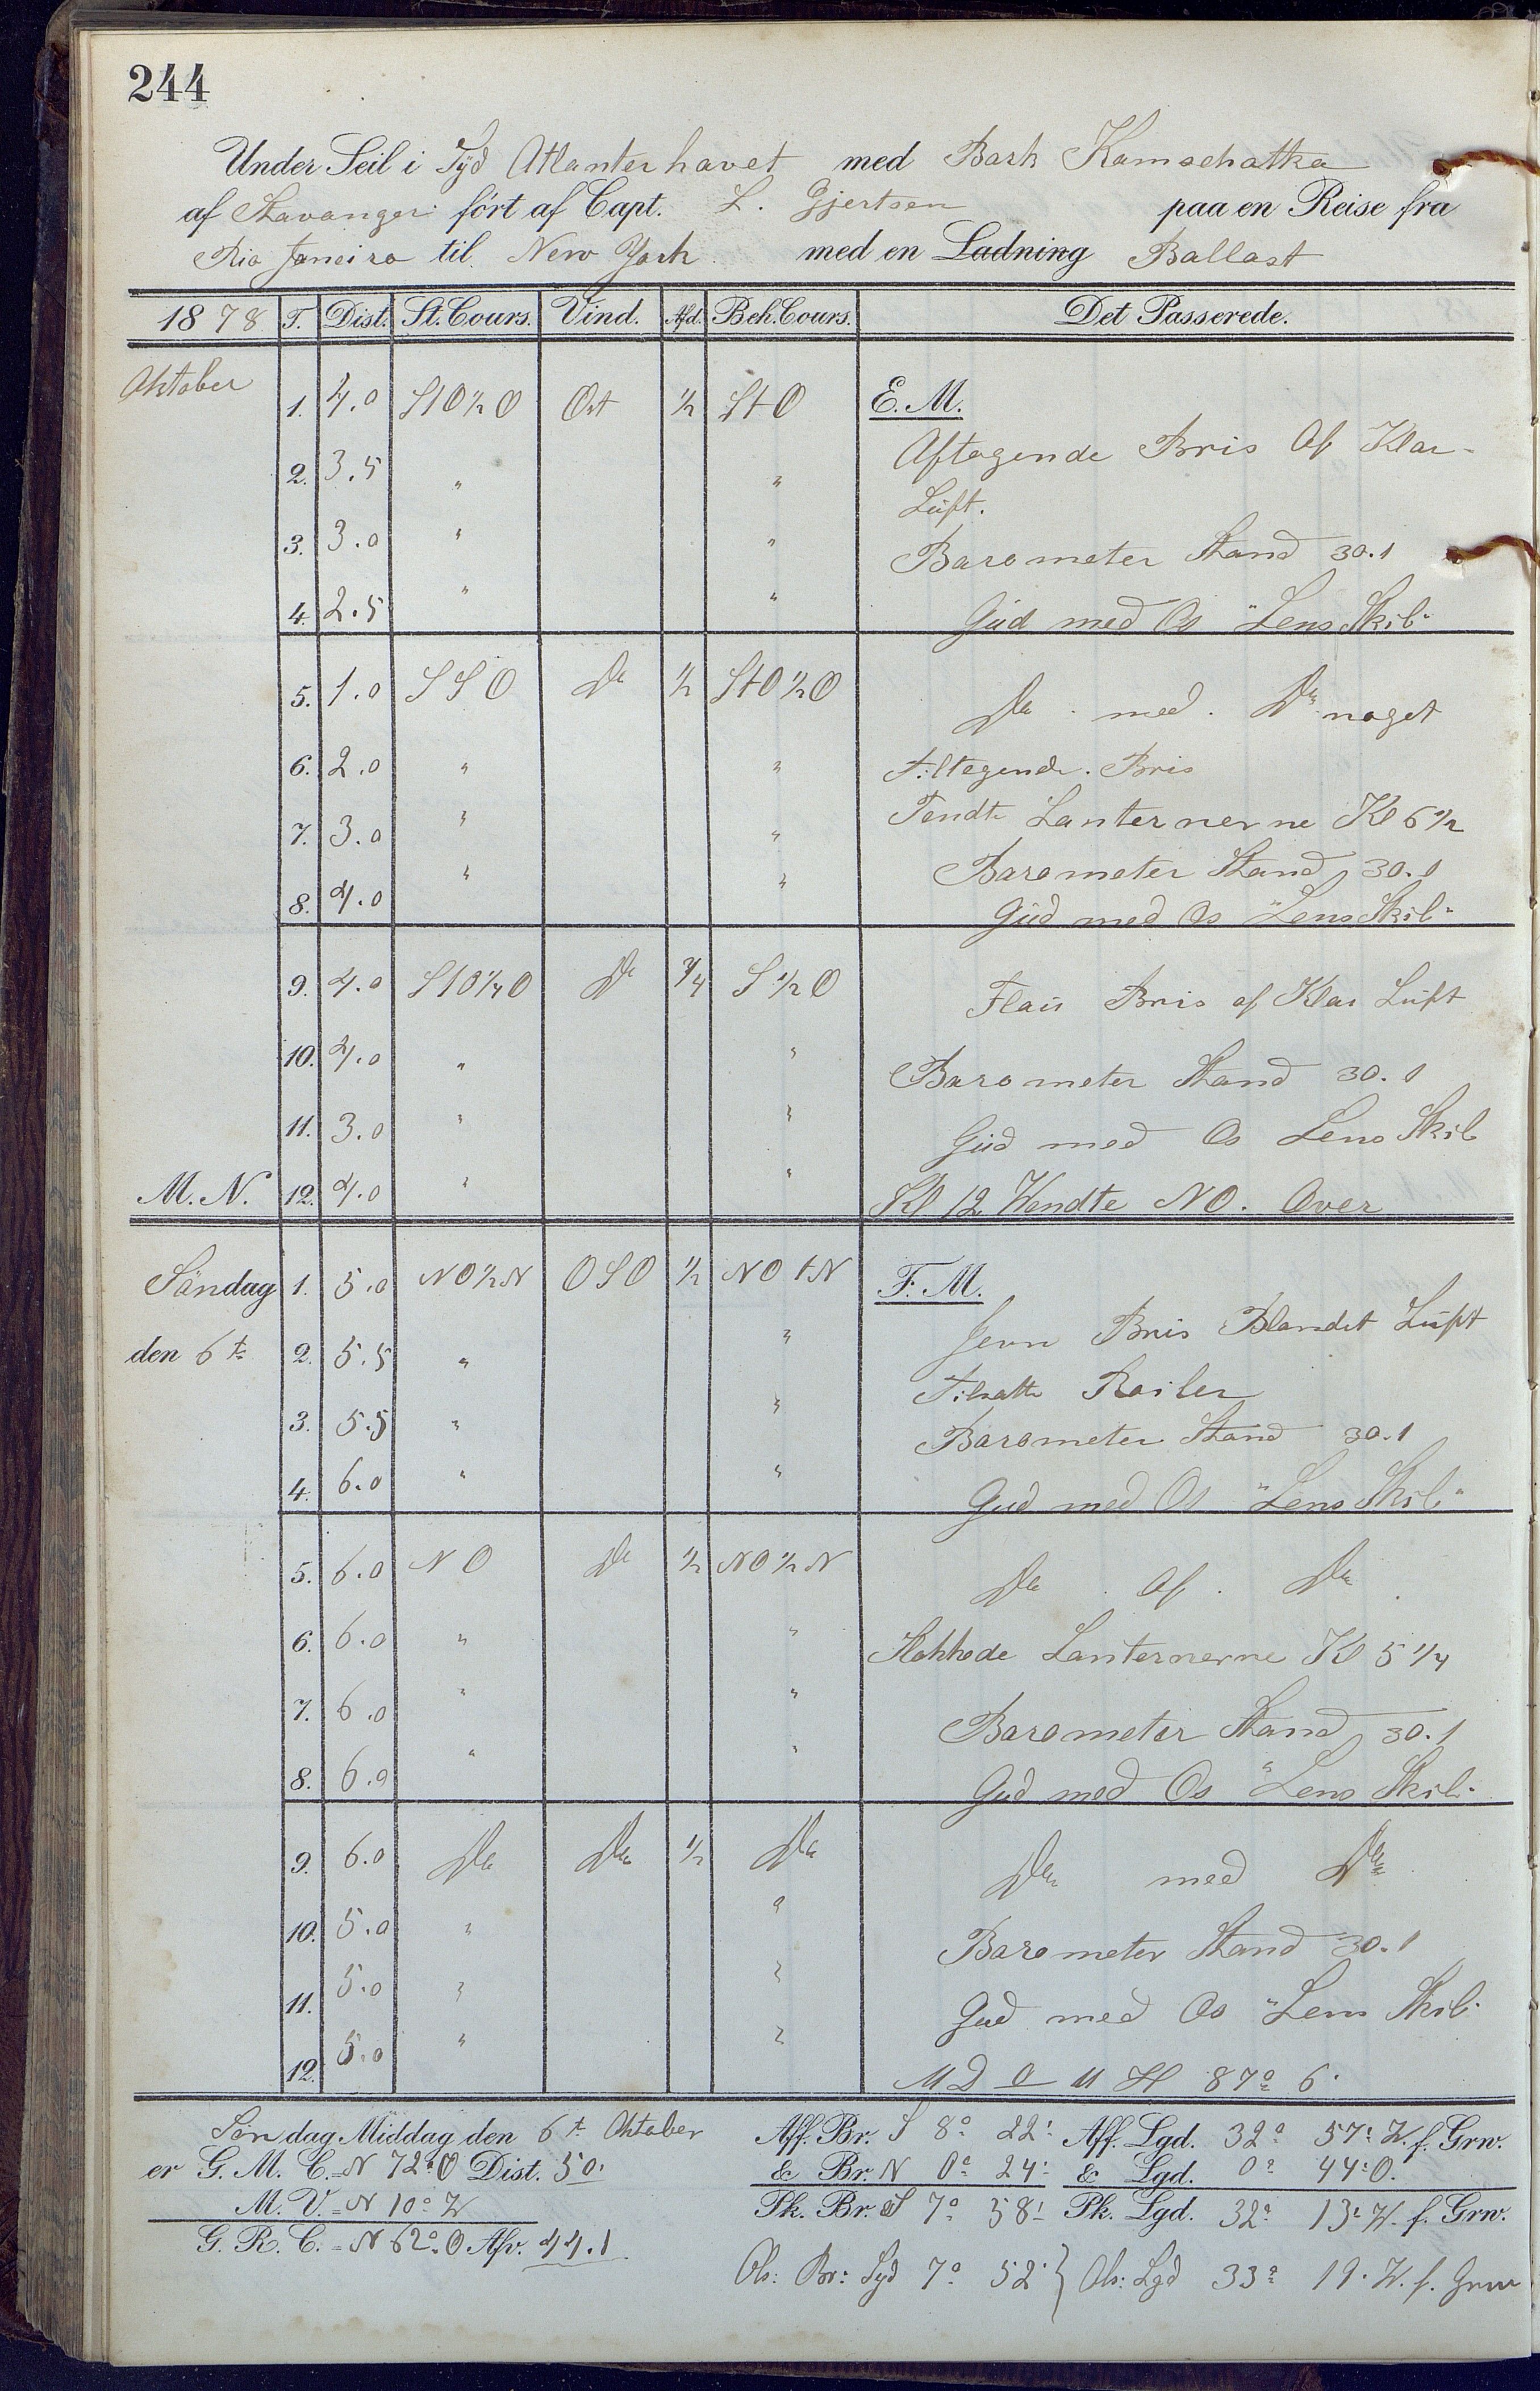 244
Under Seil i Syd Atlanterhavet med Bark Kamschatka
af Stavanger ført af Capt. L. Gjertsen paa en Reise fra
Rio Janeiro til New York med en Ladning Ballast
1878 T. Dist. St. Cours. Vind. Afd. Beh. Cours. Det Passerede.
Oktober 1. 4.0 StO½O Ost ½ StO E. M.
Aftagende Bris Af Klar
2. 3.5 " "
Luft.
3. 3.0 " " Barometer Stand 30.1
4. 2.5 " " Gud med Os "Lens Skib"
5. 1.0 SSO Do ½ StO½O Do med Do noget
6. 2.0 " " Tiltagende Bris
7. 3.0 " " Tendte Lanternerne Kl 6½
Barometer Stand 30.1
8. 4.0 " " Gud med Os "Lens Skib"
9. 4.0 StO¼O Do ¾ S½O Flau Bris af Klar Luft
10. 4.0 " " Barometer Stand 30.1
11. 3.0 " " Gud med Os Lens Skib
M. N. 12. 4.0 " " Kl 12 Vendte NO. Over
Søndag 1. 5.0 NO½N OSO ½ NOtN F. M.
Jevn Bris Blandet Luft
den 6te 2. 5.5 " "
Tilsatte Roiler
3. 5.5 " " Barometer Stand 30.1
4. 6.0 " " Gud med Os "Lens Skib"
5. 6.0 NO Do ½ NO½N Do Af Do
6. 6.0 " " Slokkede Lanternerne Kl 5¼
7. 6.0 " " Barometer Stand 30.1
8. 6.0 " " Gud med Os "Lens Skib"
9. 6.0 Do Do ½ Do Do med Do
10. 5.0 " " Barometer Stand 30.1
11. 5.0 " " Gud med Os "Lens Skib"
12. 5.0 " "
87° 6'
Søndag Middag den 6te Oktober Aff. Br. S 8° 22' Aff. Lgd. 32° 57' W. f. Grw.
er G. M. C. = N 72° O Dist. 50' & Br. N 0° 24' & Lgd. 0° 44' O.
M. V. = N 10° W Pk. Br. S 7° 58' Pk. Lgd. 32° 13' W. f. Grw.
G. R. C. = N 62° O Afv. 44.1
Obs: Br: Syd 7° 52' } Obs: Lgd 33° 19' W. f. Grw